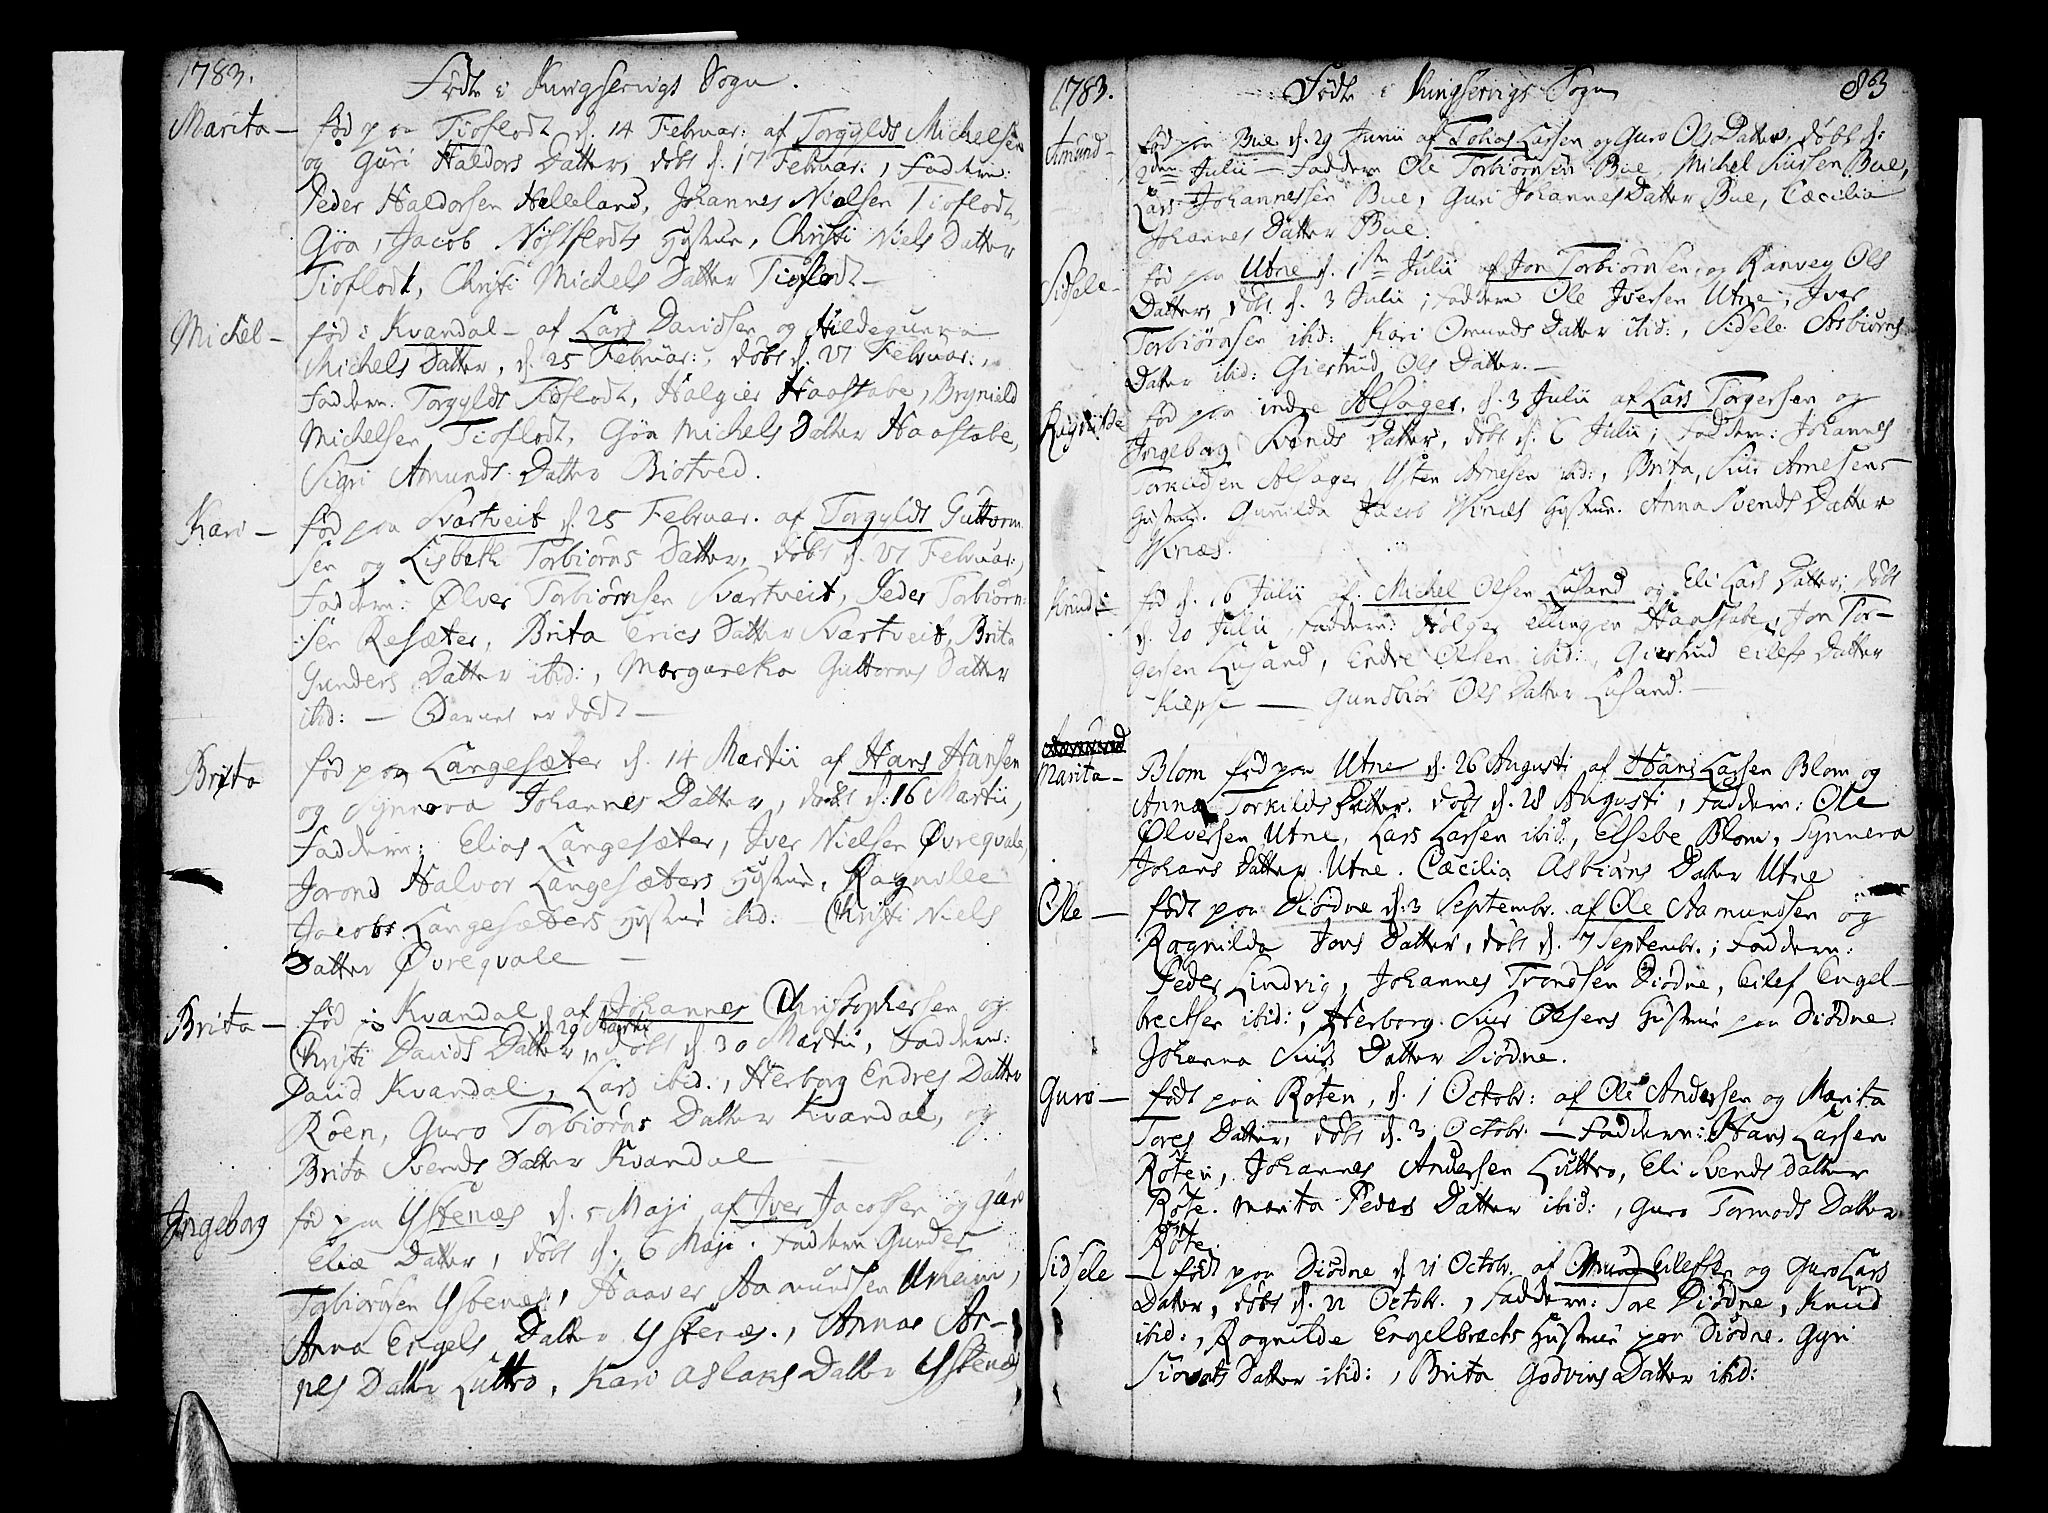 1783.
Födte i Kingservigs Sogn.
Marita —
föd paa Tioflodt d. 14 Februar: af Torgylds Michelsen
og Guri Haldors Datter, döbt d. 17 Februar:, Faddern:
Peder Haldorsen Helleland, Johannes Nielsen Tioflodt,
Göa, Jacob Nöstflodts Hustrue, Christi Niels Datter
Tioflodt, Christi Michels Datter Tioflodt —
Michel —
föd i Kvandal — af Lars Davidsen og Hildegunna
Michels Datter, d. 25 Februar:, döbt d. 27 Februar:,
Faddern: Torgylds Tioflodt, Halgier Haastabe, Brynield
Michelsen Tioflodt, Göa Michels Datter Haastabe,
Sigri Amunds Datter Biotved.
Kari —
föd paa Svartveit d. 25 Februar. af Torgylds Guttorm
sen og Lisbeth Torbiörns Datter, döbt d. 27 Februar:,
Faddern: Ölver Torbiörnsen Svartveit, Peder Torbiörn:
sen Resæter, Brita Erics Datter Svartveit, Brita
Gunders Datter ibid:, Margareta Guttorms Datter
ibid: — Barnet er dödt —
Brita
föd paa Langesæter d. 14 Martii af Hans Hansen
og Synnova Johannes Datter, döbt d: 16 Martii,
Faddern: Elias Langesæter, Iver Nielsen Øvreqvale,
Jorond Halvor Langesæters Hustrue, Ragnilde
Jacobs Langesæters Hustrue ibid: Christi Niels
Datter Øvreqvale —
Brita —
föd i Kvandal af Johannes Christophersen og
d 29 Martii
Christi Davids Datter, döbt d 30 Martii, Faddern:
David Kvandal, Lars ibid:, Herborg Endres Datter
Röen, Guro Torbiörns Datter Kvandal, og
Brita Svends Datter Kvandal —
Ingeborg
föd paa Ystenæs d. 5 Maji af Iver Jacobsen og Guro
Eliæ Datter, döbt d. 6 Maji. Faddern Gunder
Torbiörnsen Ystenæs, Haaver Aamundsen
Anna Engels Datter Ystenæs., Annas Ar-
nes Datter Luttro, Kari Aslaks Datter Ystenæs
1783.
Födte i Kingservigs Sogn
83
Amund —
föd paa Bue d. 29 Junii af Tohias Larsen og Guro Ols Datter, döbt d:
2den Julii — Faddern Ole Torbiörnsen Bue, Michel Siursen Bue,
Lars Johannessen Bue, Guri Johannes Datter Bue, Cæcilia
Johannes Datter Bue.
Sidsele —
föd paa Utne d. 1ste Julii af Jon Torbiörnsen, og Ranvey Ols
Datter, döbt d. 3 Julii, Faddern Ole Iversen Utne, Iver
Torbiörnsen ibid: Kari Omunds Datter ibid:, Sidsele Asbiörns
Datter ibid: Giertrud Ols Datter. —
Ragnilde
föd paa indre Alsager, d. 3 Julii af Lars Torgersen og
Ingeborg Svends Datter, döbt d. 6 Julii, Faddern: Johannes
Torkilden Alsager, Ysten Arnesen ibid:, Brita, Siur Arnesens
Hustrue. Gunilda Jacob Vinæs Hustrue. Anna Svends Datter
Vinæs.
Knud —
föd d. 16 Julii af Michel Olsen Lusand og Eli Lars Datter, döbt
d. 20 Julii, Faddern: Holger Ellingen Haastabe, Jon Tor-
gersen Lusand, Endre Olsen ibid:, Giertrud Eilefs Datter
Kiepse — Gundbiör Ols Datter Lusand. —
Marita —
Blom föd paa Utne d. 26 Augusti af Hans Larsen Blom og
Anna Torkilds Datter. döbt d. 28 Augusti, Faddern: Ole
Ölversen Utne, Lars Larsen ibid:, Elsebe Blom, Synnera
Johans Datter Utne. Cæcilia Asbiörns Datter Utne
Ole —
födt paa Diödne d. 3 Septembr. af Ole Aamundsen og
Ragnilda Jons Datter, döbt d. 7 Septembr.; Faddern:
Peder Lindvig, Johannes Trondsen Diödne, Eilef Engel-
brecktsen ibid:, Herborg Siur Olsens Hustrue paa Diödne.
Johanna Siurs Datter Diödne.
Guro —
födt paa Roten, d. 1 Octobr: af Ole Andersen og Marita
Tores Datter, döbt d. 3 Octobr. — Faddern: Hans Larsen
Röten, Johannes Andersen Luttro, Eli Svends Datter
Röte. Marita Peders Datter ibid:, Guro Tormods Datter
Röte.
Sidsele
— födt paa Diödne d. 21 Octobr. af Amund Eilefsen og Guro Lars
Datter, döbt d. 22 Octobr., Faddern: Tore Diödne, Knud
ibid:, Ragnilde Engelbreckts Hustrue paa Diödne. Gyri
Siovats Datter ibid:, Brita Godvins Datter ibid: